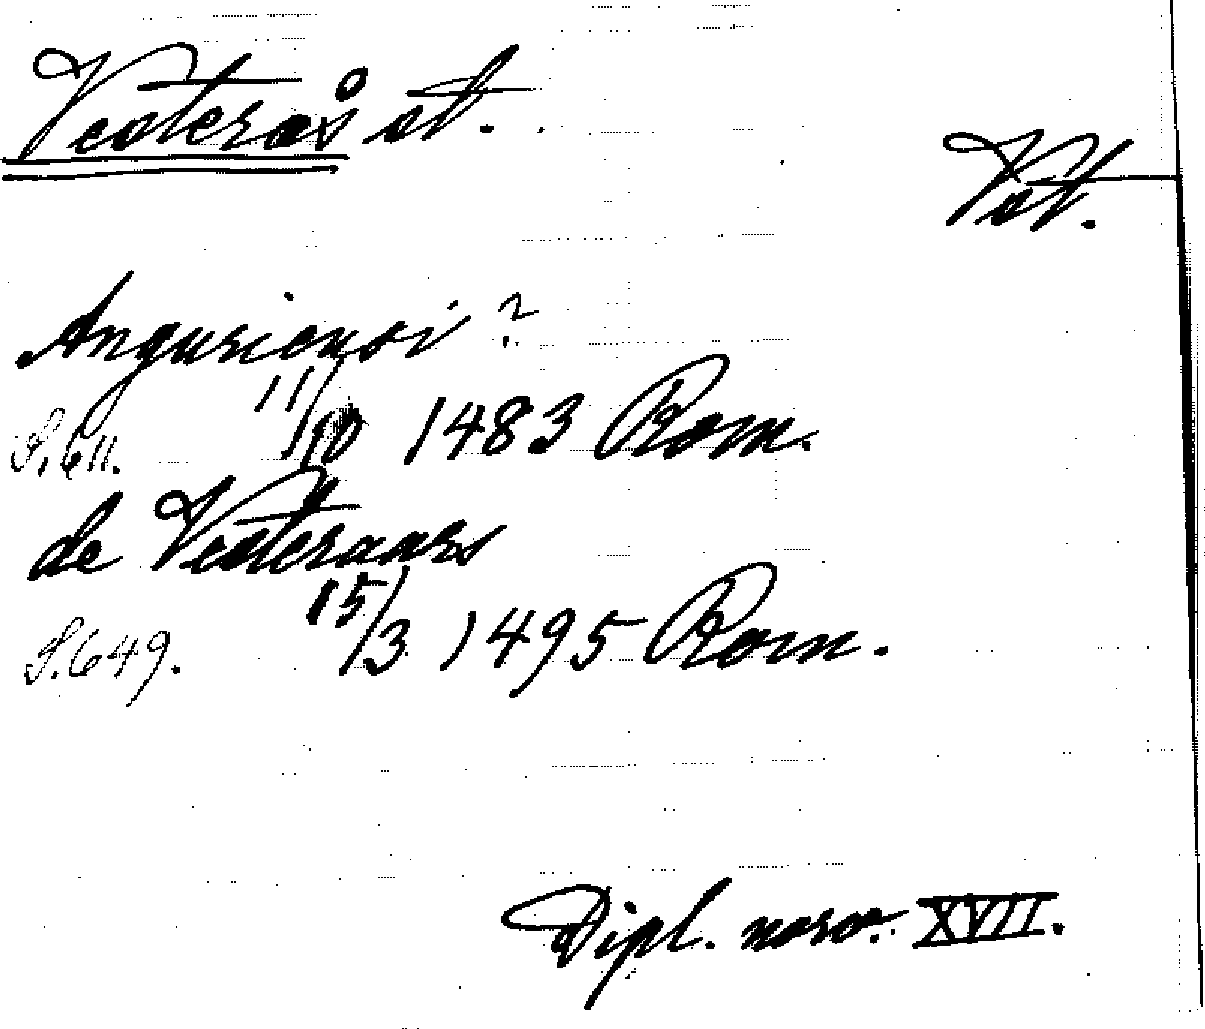 Vesterås st.
Vst.
Angusiensi ?
11/10 1483 Rom.
S. 611.
de Vesteraars
15/3 1495 Rom.
S. 649.
Dipl. norv. XVII.